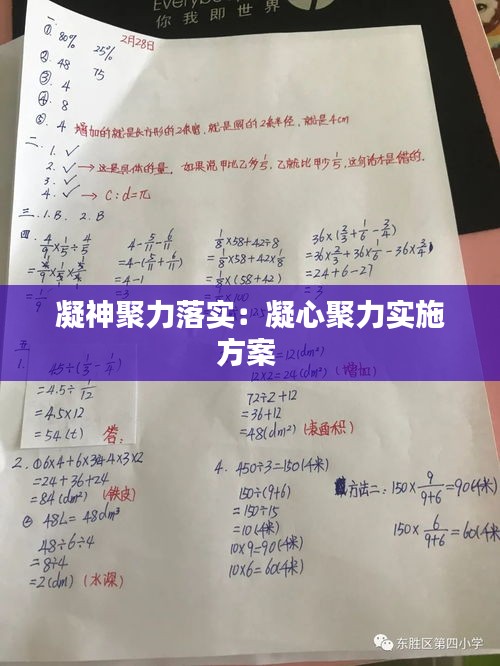 Everybody
你我即世界
一、
2月28日
① 80% 25%
②. 48 75
③. 4
④. 8
⑤. 4 增加的就是长方形的2条宽,就是圆的2条半径,就是4cm
二、1. ✓
2. ✓ → 这是具体的量, 如果说甲比乙多1/5,乙就比甲少1/5,这句话才是错的.
3. ✓
4. ✓ → C:d=π
三. 1. B. 2. B
四. 4/9×1/5÷4/5
=4/9×1/5×5/4
=1/9
4-5/11-6/11
=4-(5/11+6/11)
=4-1
1/8×58+42÷8
=1/8×58+42×1/8
=1/8×(58+42)
36×(2/3+1/6-3/4)
=36×2/3+36×1/6-36×3/4
=24+6-27
凝神聚力落实:凝心聚力实施
方案
五
1. 45÷(1/3-1/4)
=4.5÷1/12
=4.5×12
=54(t) 答:
=12(dm)
12×2=24(dm²) (增加)
72÷2+12
=36+12
=48(dm²) (表面积)
2. ①6×4+6×3×2+4×3×2
=24+36+24
=84(dm²) (铁皮)
② 48L=48dm³
48÷6÷4
=8÷4
=2(dm) (水深)
4. 450÷3=150(千米)
150÷(9+6)
=150÷15
=10(千米)
10×9=90(千米)
10×6=60(千米)
方法二:150×9/(9+6)=90(千米)
150×6/(9+6)=60(千米)
东胜区第四小学